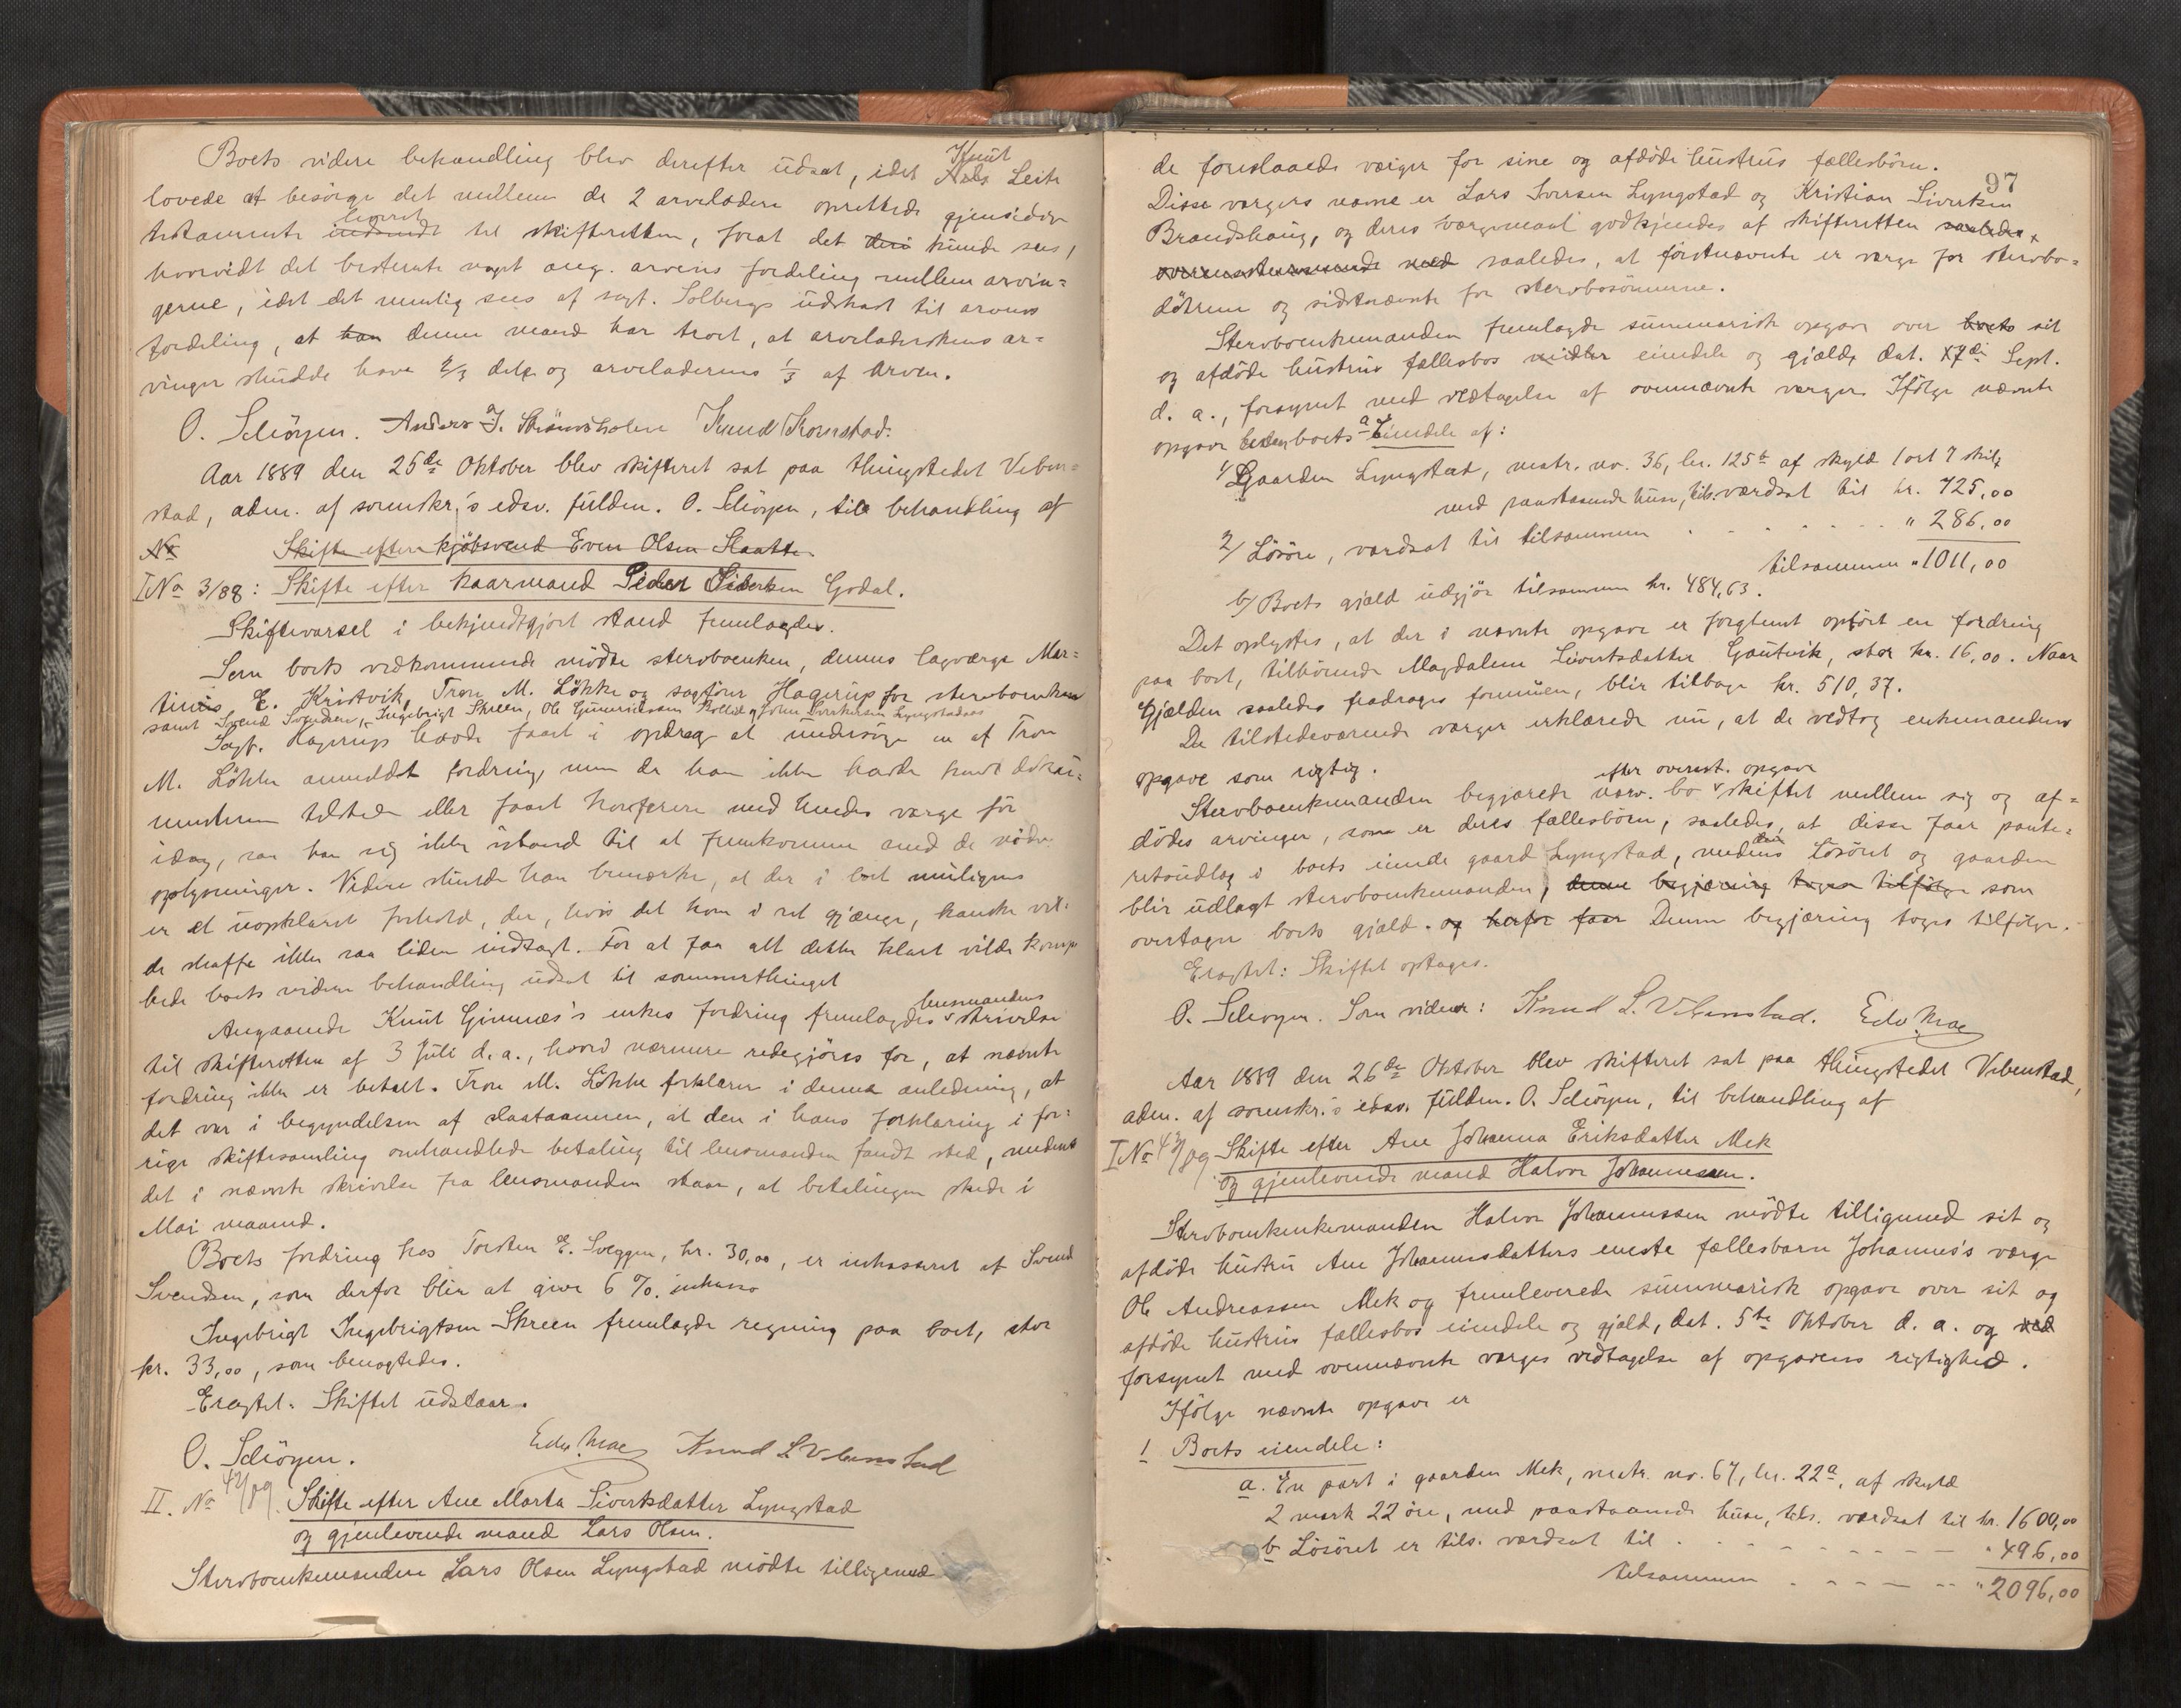 Boets videre behandling blev derefter udsat, idet Knut Leite
lovede at besörge det mellem de 2 arveladere oprettede gjensidige
testamente leveret til skifteretten, forat det kunde sees,
hvorvidt det bestemte noget ang. arvens fordeling mellem arvin=
gerne, idet det nemlig sees af sagf. Solbergs udkast til arvens
fordeling, at denne mand har troet, at arveladerskens ar=
vinger skulde have 2/3 dele og arveladerens 1/3 af arven.
O. Schöyen. Anders J. Strömsholm Knud Kornstad.
Aar 1889 den 25de Oktober blev skifteret sat paa thingstedet Veben=
stad, adm. af sorenskr.'s edsv. fuldm. O. Schöyen, til behandling af
No Skifte efter kjöbsvend Even Olsen Slaatte
I No 3/88: Skifte efter kaarmand Peder Sivertsen Godal.
Skiftevarsel i bekjendtgjort stand fremlagdes.
Som boets vedkommende mödte stervboenken, dennes lagværge Mar=
tinus E. Kristvik, Tron M. Lökke og sagförer Hagerup for stervboenken
samt Svend Svendsen, Ingebrigt Skreen, Ole Gunnerussen og John Sivertsen Lyngstadaas
Sagf. Hagerup havde faaet i opdrag at undersöge en af Tron
M. Lökke anmeldt fordring, men da han ikke havde havt doku=
menterne tilstede eller faaet konferere med hendes værge för
idag, saa han sig ikke istand til at fremkomme med de nödv.
oplysninger. Videre skulde han bemærke, at der i boet muligens
er et uopklaret forhold, der, hvis det kom i ret gjænge, kanske vil=
de skaffe ikke saa liden indtægt. For at faa alt dette klart vilde komp.
bede boets videre behandling udsat til sommerthinget
Angaaende Knut Gimnæs's enkes fordring fremlagdes lensmandens skrivelse
til skifteretten af 3 Juli d. a., hvori nærmere redegjöres for, at nævnte
fordring ikke er betalt. Tron M. Lökke forklarer i denne anledning, at
det var i begyndelsen af slaataannen, at den i hans forklaring i for=
rige skiftesamling omhandlede betaling til lensmanden fandt sted, medens
det i nævnte skrivelse fra lensmanden staar, at betalingen skede i
Mai maaned.
Boets fordring hos Torsten E. Sveggen, kr. 30,00, er inkasseret af Svend
Svendsen, som derfor blir at give 6 %. inkasso
Ingebrigt Ingebrigtsen Skreen fremlagde regning paa boet, stor
kr. 33,00, som benegtedes.
Eragtet: Skiftet udstaar.
O. Schöyen. Edv. Moe Knud L Vebenstad
II. No 42/89. Skifte efter Ane Marta Sivertsdatter Lyngstad
og gjenlevende mand Lars Olsen.
Stervboenkemanden Lars Olsen Lyngstad mödte tilligemed
97
de foreslaaede værger for sine og afdöde hustrus fællesbörn.
Disse værgers navne er Lars Iversen Lyngstad og Kristian Sivertsen
Brandshaug, og deres værgemaal godkjendes af skifteretten saaledes
overensstemmende med saaledes, at förstnævnte er værge for stervbo=
dötrene og sidstnævnte for stervbosönnerne.
Stervboenkemanden fremlagde summarisk opgave over boets sit
og afdöde hustrus fællesbos midler eiendele og gjæld, dat. 17de Sept.
d. a., forsynet med vedtagelse af ovennævnte værger. Ifölge nævnte
opgave bestaar boets a Eiendele af:
1/ Gaarden Lyngstad, matr. no. 36, lr. 125b af skyld 1 ort 7 skil,
med paastaaende huse, tils. værdsat til kr. 725,00
2/ Lösöre, værdsat til tilsammen . . . . . . " 286,00
tilsammen " 1011,00
b/ Boets gjæld udgjör tilsammen kr. 484,63.
Det oplystes, at der i nævnte opgave er forglemt opfört en fordring
paa boet, tilhörende Magdalene Sivertsdatter Gautvik, stor kr. 16,00. Naar
gjælden saaledes fradrages formuen, blir tilbage kr. 510,37.
De tilstedeværende værger erklærede nu, at de vedtog enkemandens
opgave som rigtig.
Stervboenkemanden begjærede nærv. bo efter overenst. opgave skiftet mellem sig og af=
dödes arvinger, som er deres fællesbörn, saaledes, at disse faar pante=
retsudlæg i boets eiende gaard Lyngstad, medens Lösöret og gaarden
blir udlagt stervboenkemanden, denne begjæring tages tilfölge som
overtager boets gjæld. og herfor faar Denne begjæring toges tilfölge.
Eragtet: Skiftet optages.
O. Schöyen. Som vidner: Knud L. Vebenstad. Edv. Moe
Aar 1889 den 26de Oktober blev skifteret sat paa thingstedet Vebenstad,
adm. af sorenskr.'s edsv. fuldm. O. Schöyen, til behandling af
I No 43/89 Skifte efter Ane Johanna Eriksdatter Mek
og gjenlevende mand Halvor Johannessen.
Stervboenkemanden Halvor Johannessen mödte tilligemed sit og
afdöde hustru Ane Johannesdatters eneste fællesbarn Johannes's værge
Ole Andreassen Mek og fremleverede summarisk opgave over sit og
afdöde hustrus fællesbos eiendele og gjæld, dat. 5te Oktober d. a. og ved
forsynet med ovennævnte værges vedtagelse af opgavens rigtighed.
Ifölge nævnte opgave er
1 Boets eiendele:
a. En part i gaarden Mek, matr. no. 67, lr. 22a, af skyld
2 mark 22 öre, med paastaaende huse, tils. værdsat til kr. 1600,00
b Lösöret er tils. værdsat til . . . . . . " 496,00
tilsammen . . . . " 2096,00